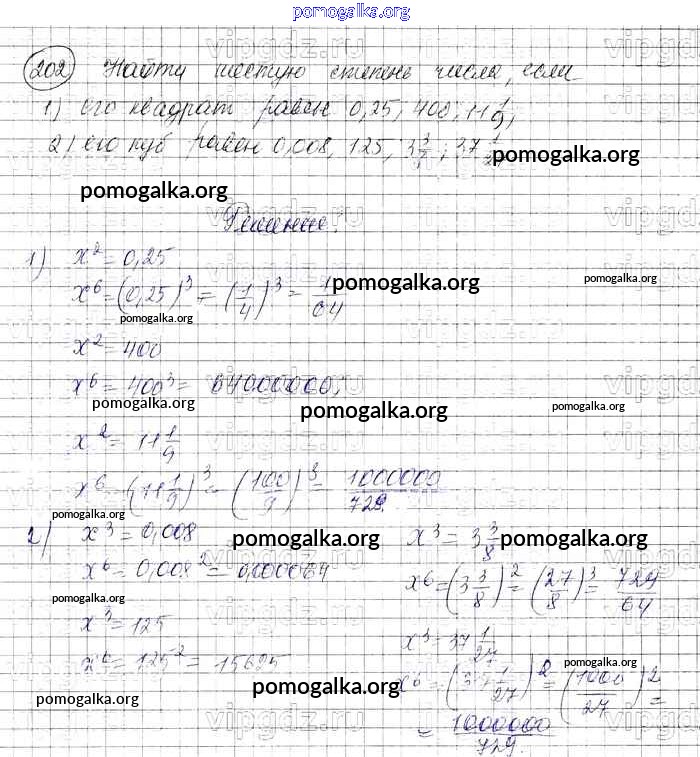 pomogalka.org
202) Найти шестую степень числа, если
1) его квадрат равен 0,25; 400; 11 1/9;
2) его куб равен 0,008, 125, 3 3/8; 37 1/27
pomogalka.org
pomogalka.org
Решение.
1) x² = 0,25
x⁶ = (0,25)³ = (1/4)³ = 1/64
pomogalka.org
pomogalka.org
pomogalka.org
x² = 400
x⁶ = 400³ = 64000000;
pomogalka.org
pomogalka.org
pomogalka.org
x² = 11 1/9
x⁶ = (11 1/9)³ = (100/9)³ = 1000000/729
pomogalka.org
2) x³ = 0,008
pomogalka.org
x⁶ = 0,008² = 0,000064
pomogalka.org
x³ = 125
x⁶ = 125² = 15625
pomogalka.org
pomogalka.org
x³ = 3 3/8
pomogalka.org
x⁶ = (3 3/8)² = (27/8)³ = 729/64
x³ = 37 1/27
pomogalka.org
x⁶ = (37 1/27)² = (1000/27)² =
= 1000000/729